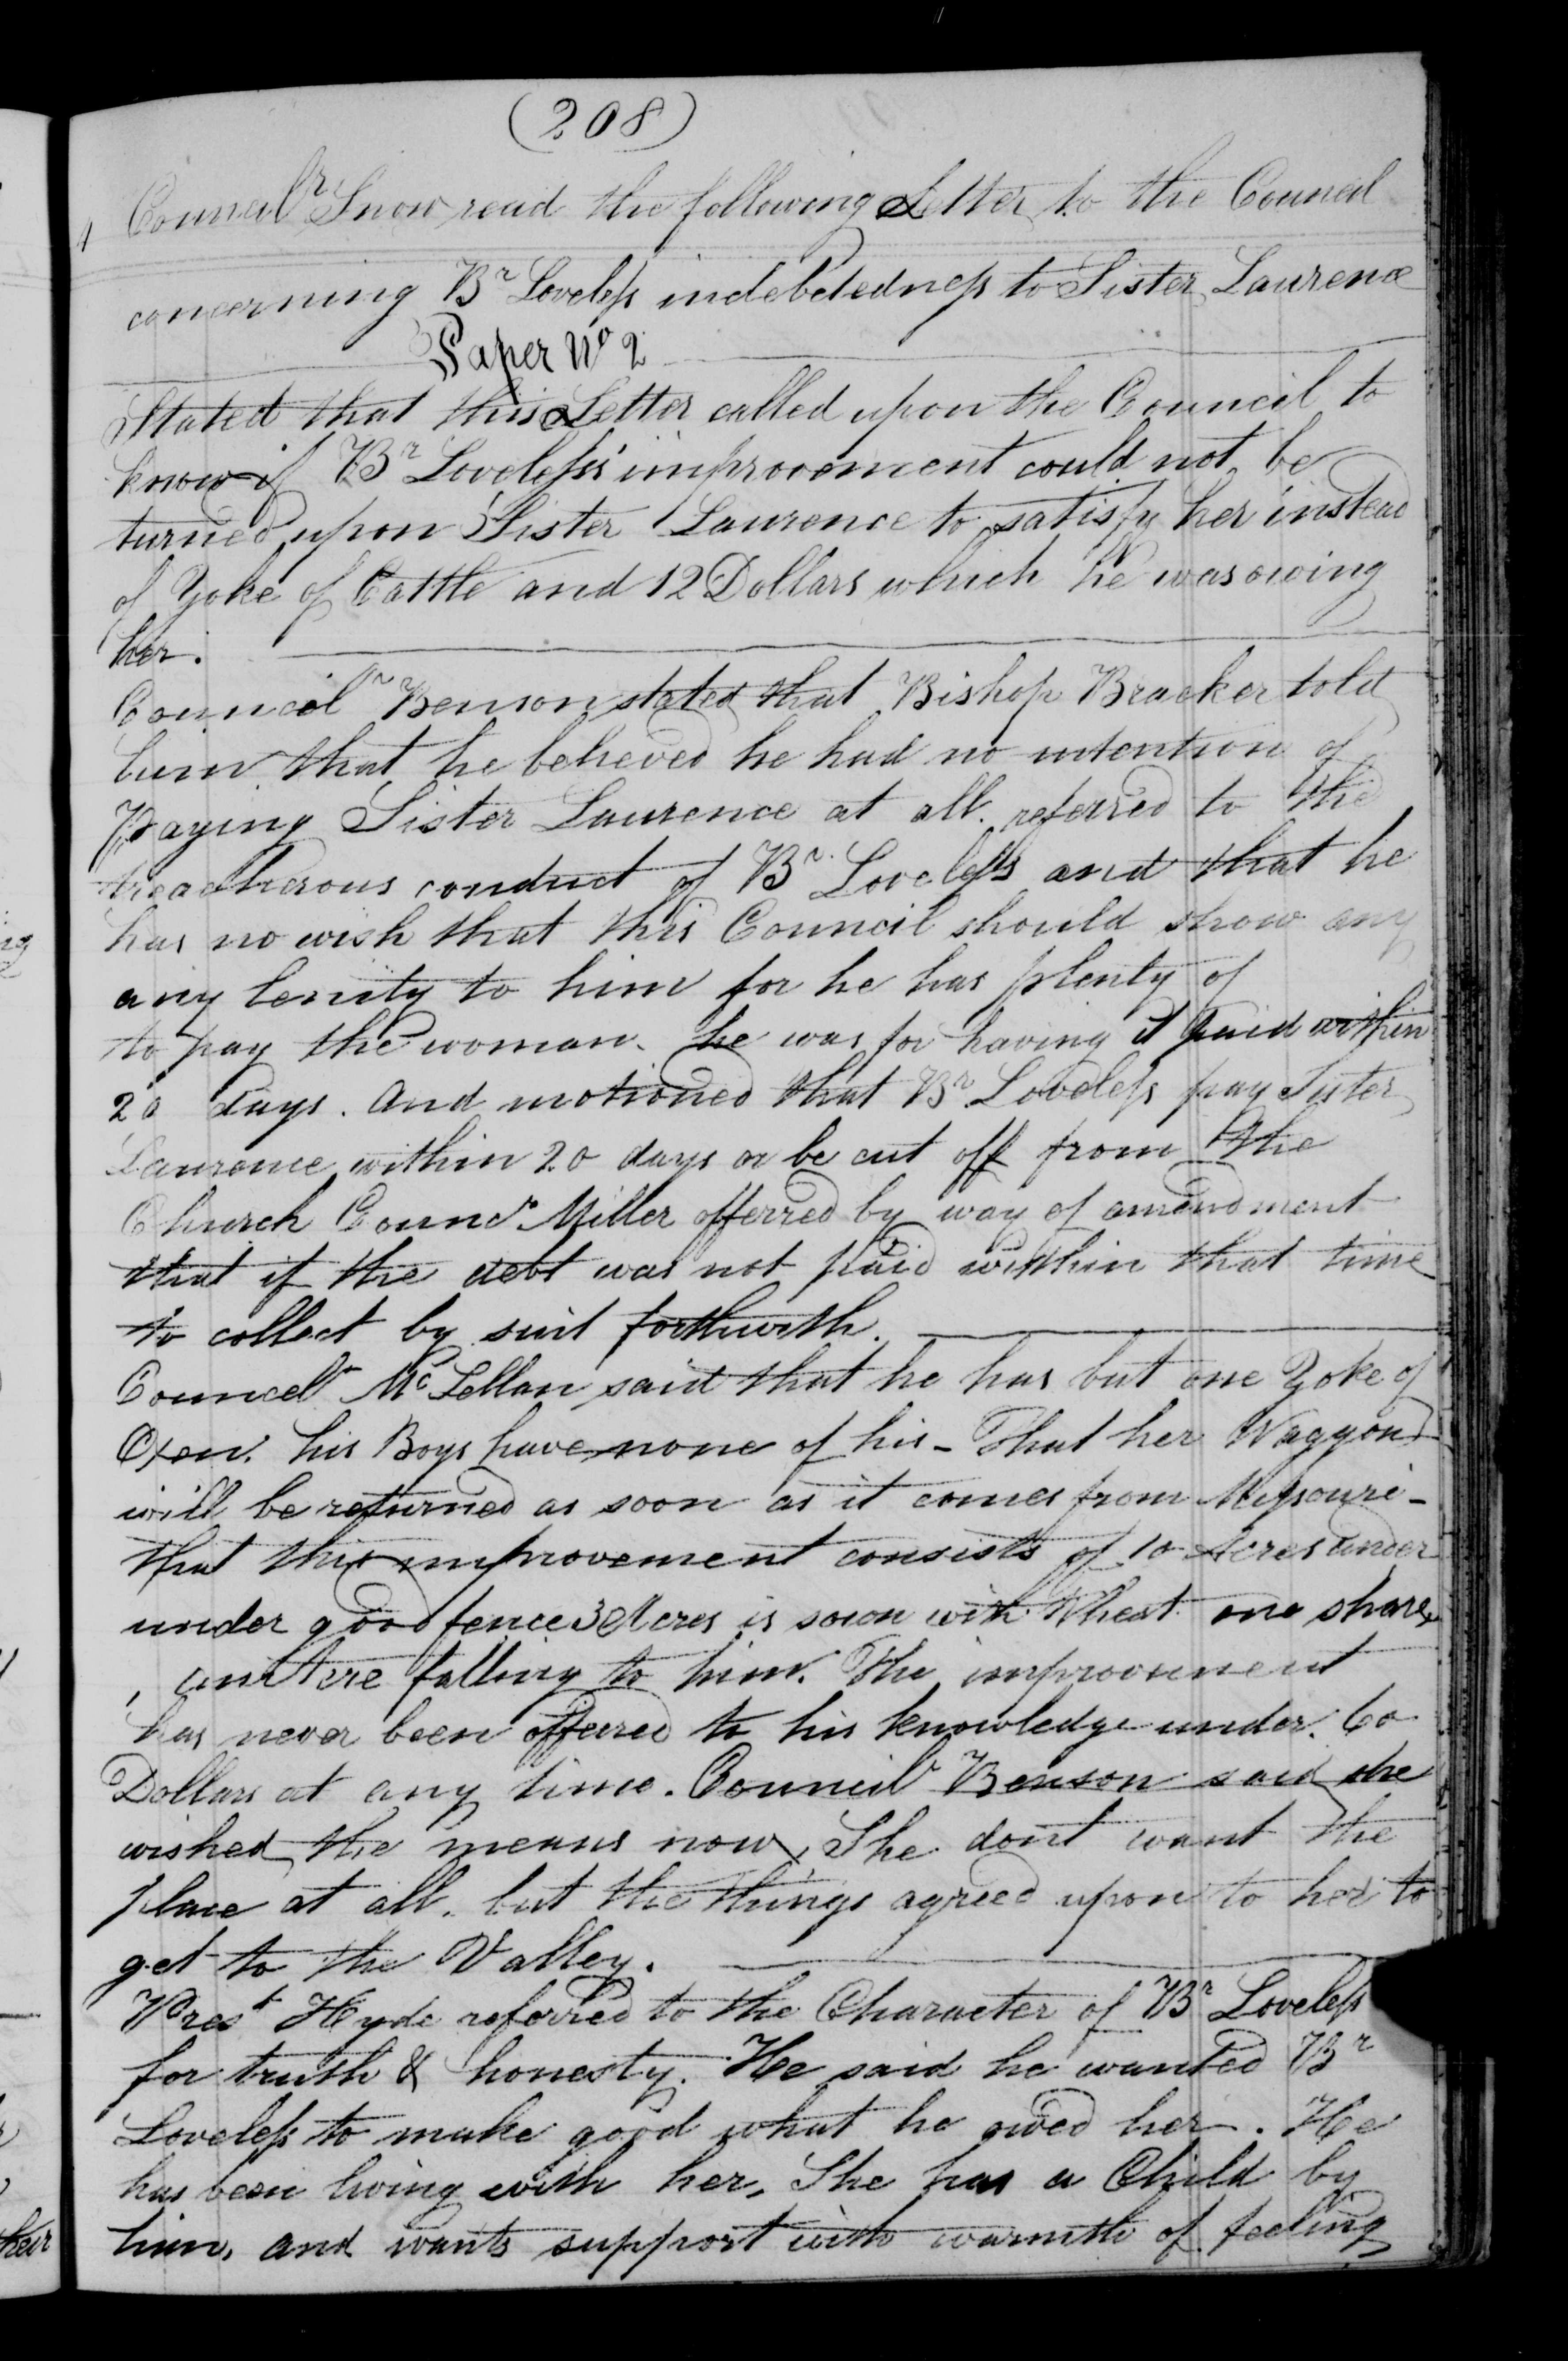 (208)
Council^r Snow read the following Letter to the Council
concerning B^r Loveless indebetedness to Sister Laurence
Paper No 2
Stated that this Letter called upon the Council to
know if B^r Loveless' improvement could not be
turned upon Sister Laurence to satisfy her instead
of Yoke of Cattle and 12 Dollars which he was owing
her.
Council^r Benson stated that Bishop Bracker told
him that he believed he had no intention of
paying Sister Laurence at all. referred to the
treadherous conduct of B^r. Loveless and that he
has no wish that this Council should show any
any lenity to him for he has plenty of
to pay the woman. he was for having it paid within
20 days. And motioned that B^r Loveless pay Sister
Laurence within 20 days or be cut off from the
Church Counc^r Miller offerred by way of amendment
that if the debt was not paid within that time
to collect by suit forthwith.
Council^r McLellan said that he has but one Yoke of
Oxen. his Boys have none of his - That her Waggon
will be returned as soon as it comes from Missouri -
that this improvement consists of 10 Acres under
under good fence 3 Acres is sown with Wheat one share
, one Acre falling to him. The improovement
has never been offerred to his knowledge under 60
Dollars at any time. Council^r Benson said she
wished the means now, She dont want the
place at all. but the things agreed upon to her to
get to the Valley.
Pres^t Hyde referred to the Character of B^r Loveless
for truth & honesty. He said he wanted B^r
Loveless to make good what he owed her. He
has been living with her, She has a Child by
him, and wants support with warmth of feeling
ng
their